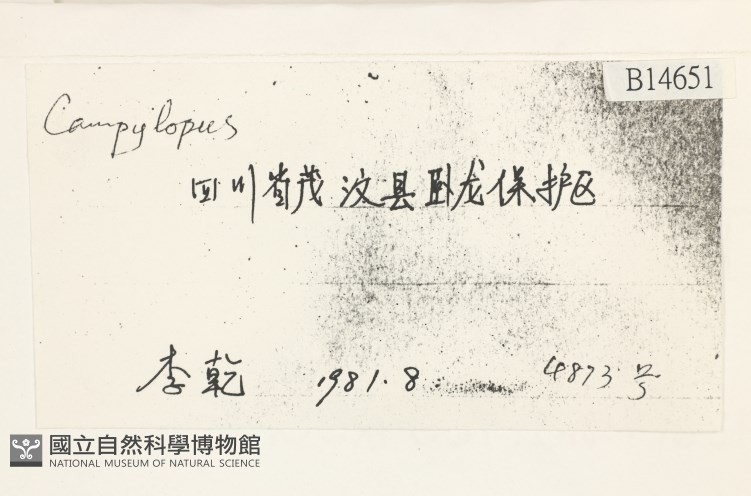 B14651
Campylopus
四川省茂汶县卧龙保护区
李乾 1981.8. 4873号
國立自然科學博物館
NATIONAL MUSEUM OF NATURAL SCIENCE